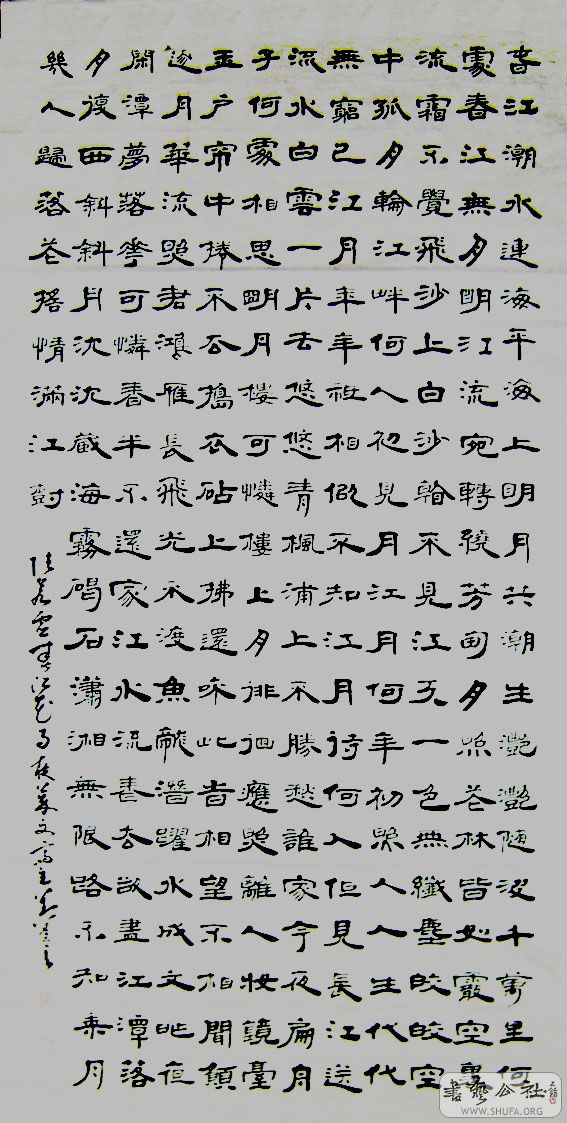 春江潮水連海平海上明月共潮生灩灩隨波千萬里何
處春江無月明江流宛轉繞芳甸月照花林皆如霰空裏
流霜不覺飛沙上白沙看不見江天一色無纖塵皎皎空
中孤月輪江畔何人初見月江月何年初照人人生代代
無窮已江月年年祗相似不知江月待何人但見長江送
流水白雲一片去悠悠青楓浦上不勝愁誰家今夜扁舟
子何處相思明月樓可憐樓上月徘徊應照離人妝鏡臺
玉戶帘中捲不去搗衣砧上拂還來此時相望不相聞願
逐月華流照君鴻雁長飛光不渡魚龍潛躍水成文昨夜
閑潭夢落花可憐春半不還家江水流春去欲盡江潭落
月復西斜斜月沈沈藏海霧碣石瀟湘無限路不知乘月
幾人歸落花搖情滿江樹
張若虛春江花月夜
書藝公社
WWW.SHUFA.ORG